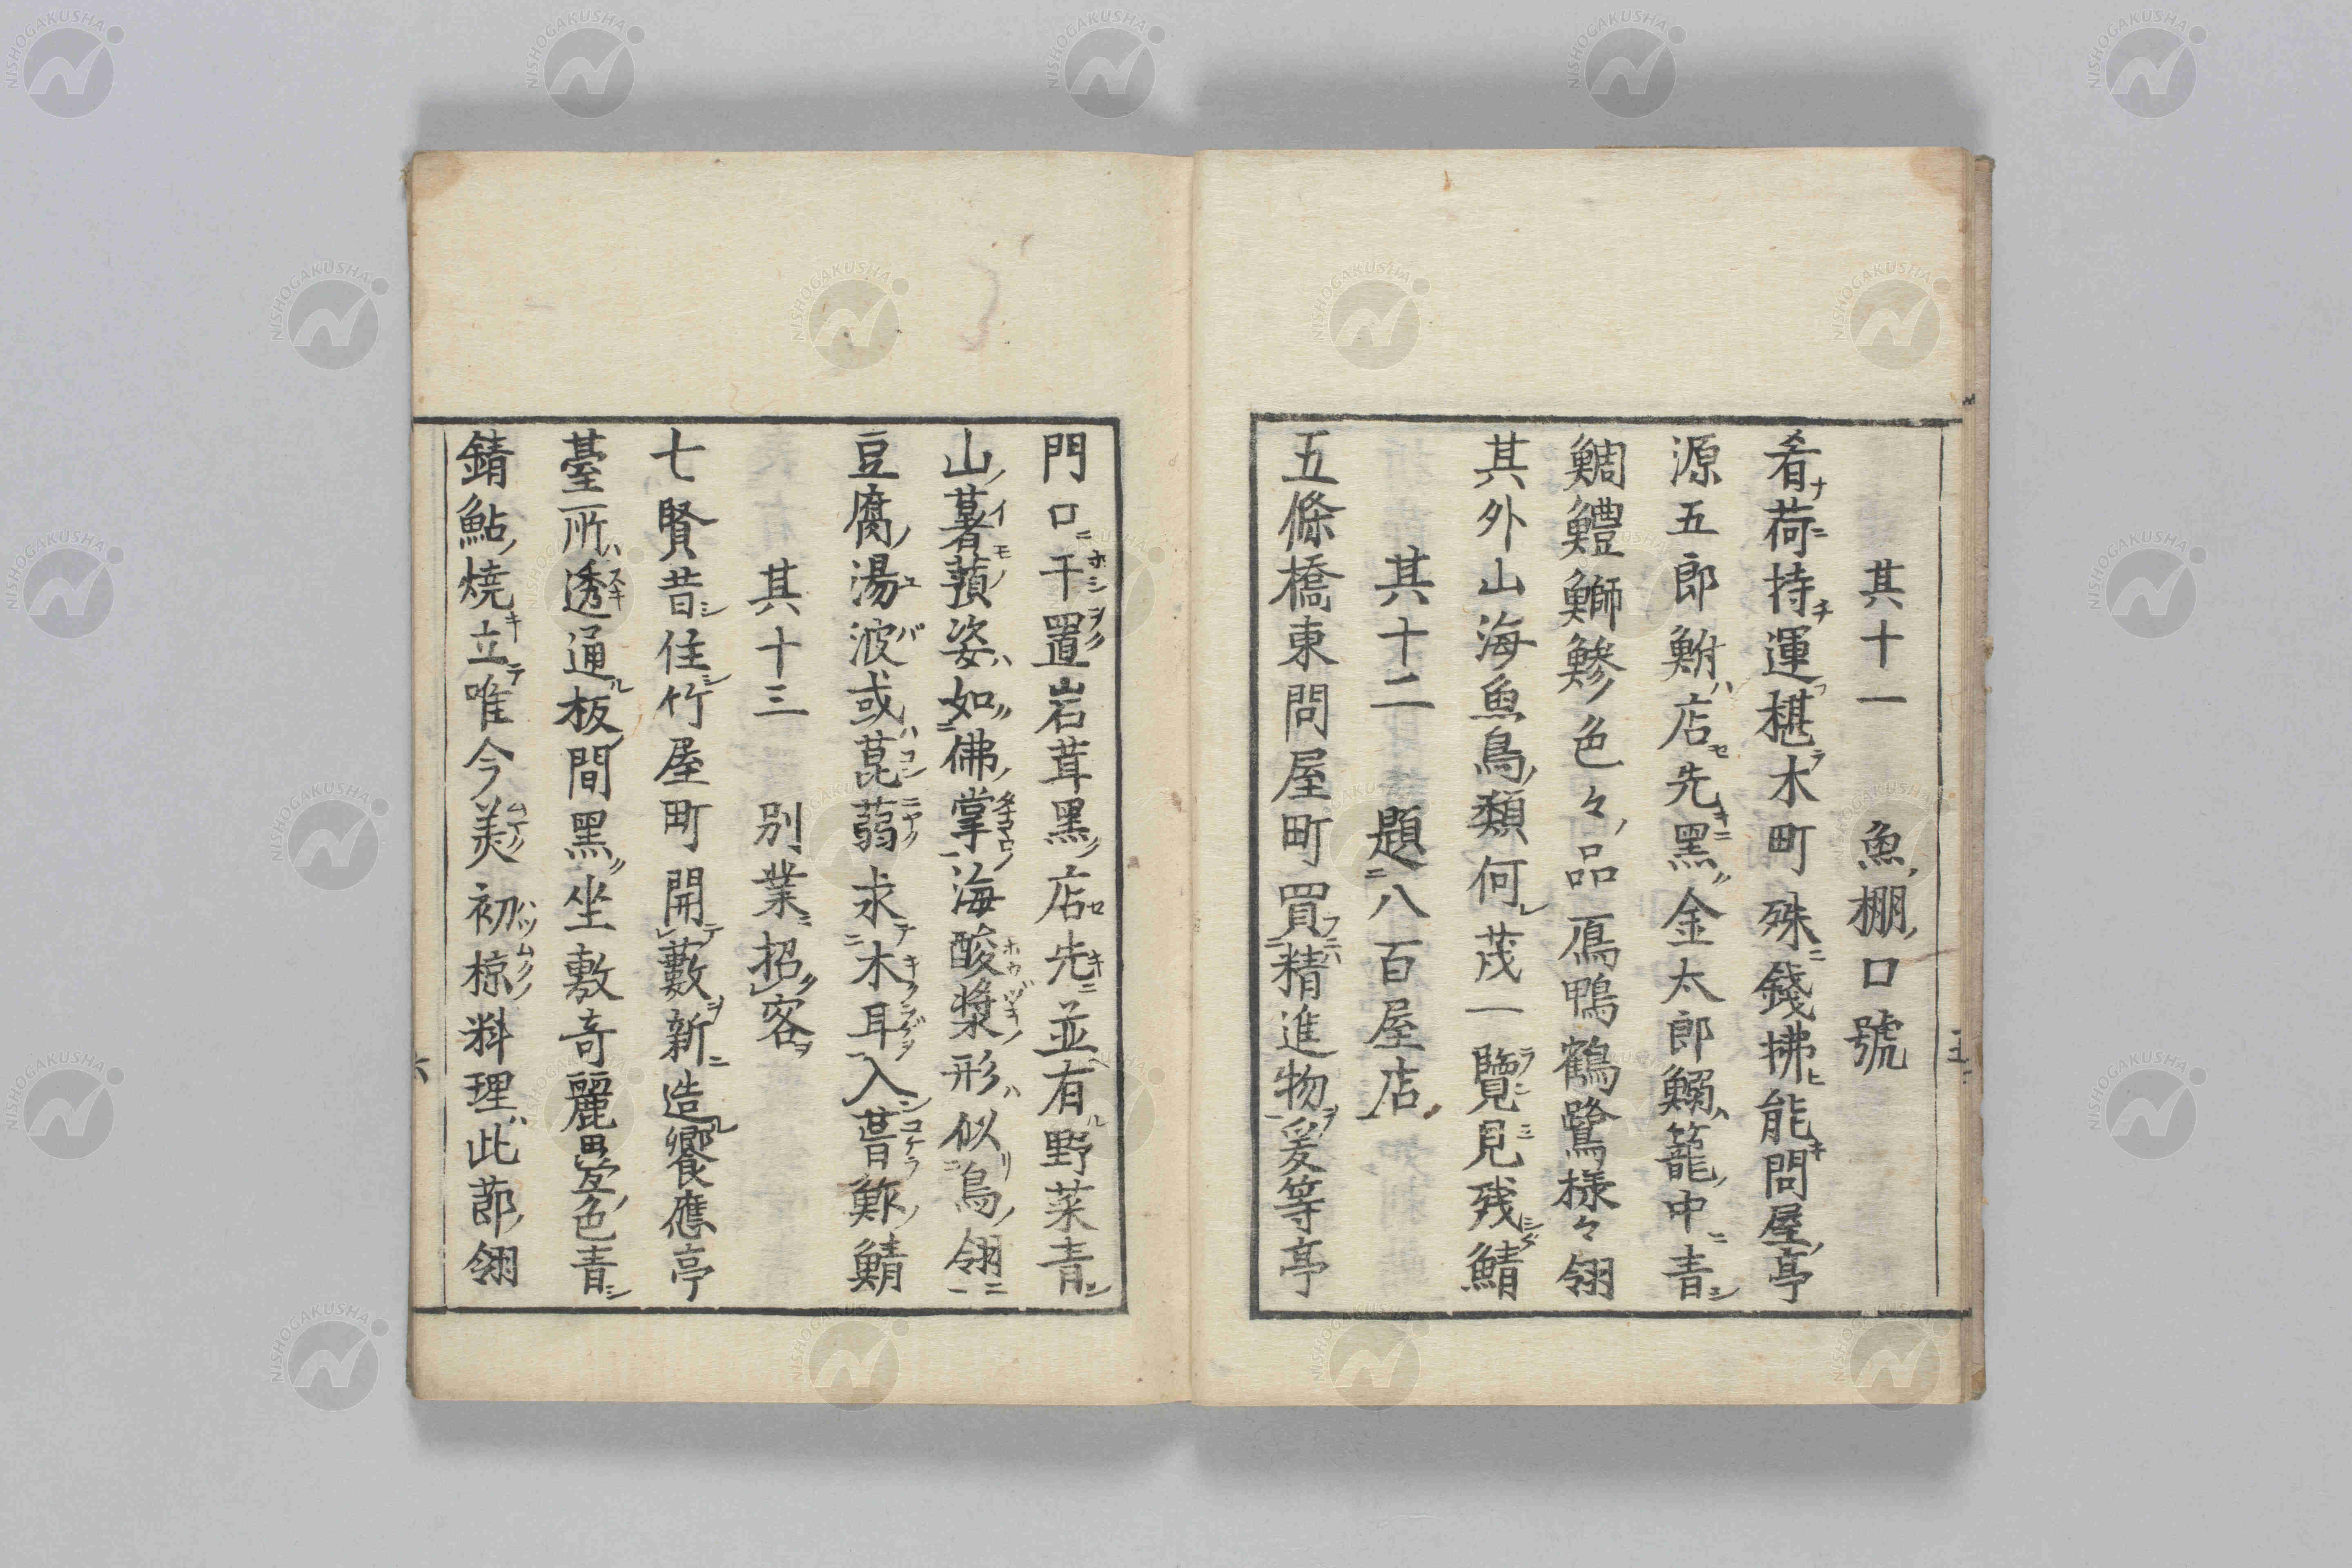 其十一 魚棚口號
肴荷持運椹木町殊錢拂能問屋亭
源五郎鮒店先黑金太郎鰯籠中青
鯛鱧鰤鯵色々品鳫鴨鶴鷺様々翎
其外山海魚鳥類何茂一覽見残鯖
其十二 題八百屋店
五條橋東問屋町買精進物爰等亭
門口干置岩茸黑店先並有野菜青
山薯蕷姿如佛掌海酸漿形似鳥翎
豆腐湯波或菎蒻求木耳入昔鮓鯖
其十三 別業招客
七賢昔住竹屋町開藪新造饗應亭
臺所透通板間黑坐敷奇麗疊色青
鯖鮎燒立唯今美初椋料理此節翎
六
NISHOGAKUSHA